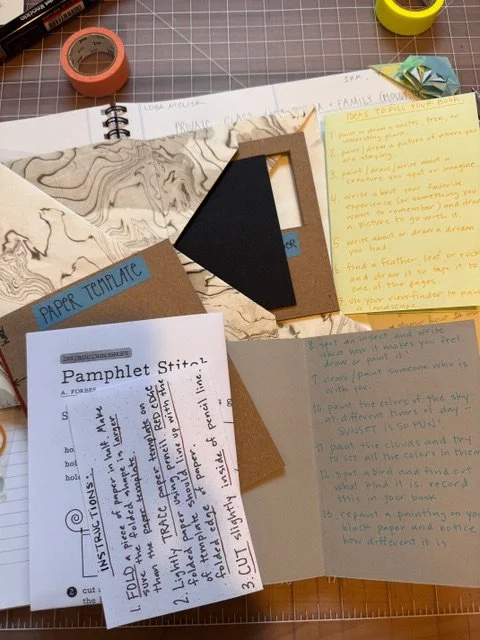 LOBA ATELIER
PRIVATE CLASS
+ FAMILY
IDEAS TO FILL YOUR BOOK
1. paint or draw a tree, or
interesting plant.
2. paint/draw a picture of where you
are staying.
3. paint/draw/write about a
creature you spot or imagine
4. write about your favorite
experience (or something you
want to remember) and draw
a picture to go with it.
5. write about or draw a dream
you had.
6. find a feather, leaf or rock
and draw it or tape it to
one of the pages.
7. use your view-finder to paint
8. spot an insect and write
about how it makes you feel.
draw or paint it!
9. draw/paint someone who is
with you.
10. paint the colors of the sky
at different times of day –
SUNSET IS SO FUN!
11. paint the clouds and try
to see all the colors in them
12. spot a bird and find out
what kind it is. record
this in your book.
13. repaint a painting on your
black paper and notice
how different it is
PAPER TEMPLATE
INSTRUCTION SHEET
Pamphlet Stitch
A. FORBES
INSTRUCTIONS:
1. FOLD a piece of paper in half. Make
sure the folded shape is larger
than the paper template.
2. Lightly TRACE paper template on
folded paper using pencil. RED EDGE
of template should line up with the
folded edge of paper.
3. CUT slightly inside of pencil line.
2 cut
the